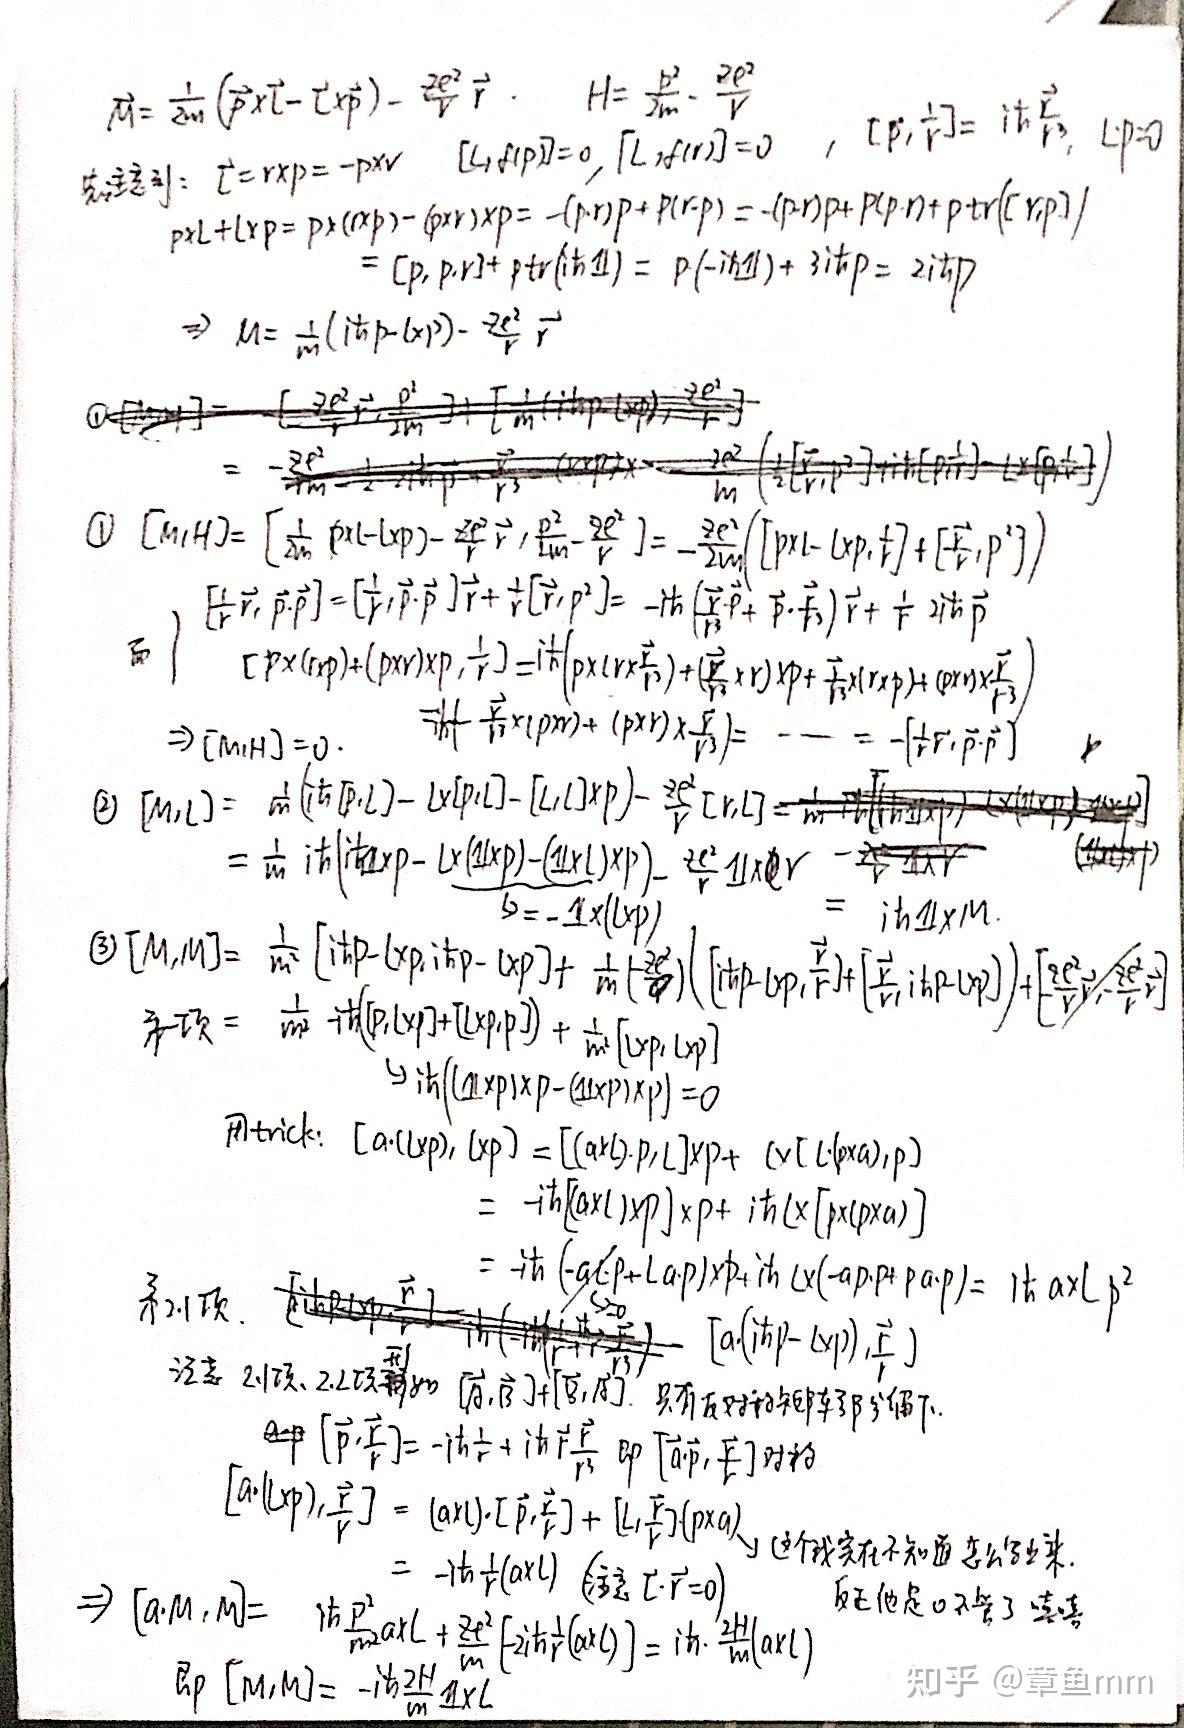 M⃗ = 1/2m (p⃗×L⃗ - L⃗×p⃗) - Ze²/r r⃗. H = p²/2m - Ze²/r
先注意到: L⃗ = r×p = -p×r [L, f(p)] = 0, [L, f(r)] = 0, [p, 1/r] = iħ r⃗/r³, L·p=0
p×L+L×p = p×(r×p) - (p×r)×p = -(p·r)p + p(r·p) = -(p·r)p + p(p·r) + p·tr([r,p])
= [p, p·r] + p tr(iħ𝟙) = p(-iħ𝟙) + 3iħp = 2iħp
⇒ M = 1/m (iħp - L×p) - Ze²/r r⃗
① [M,H] = [1/2m (p×L-L×p) - Ze²/r r⃗, p²/2m - Ze²/r] = -Ze²/2m ([p×L-L×p, 1/r] + [r⃗/r, p²])
[1/r r⃗, p⃗·p⃗] = [1/r, p⃗·p⃗] r⃗ + 1/r [r⃗, p²] = -iħ (r⃗/r³·p⃗ + p⃗·r⃗/r³) r⃗ + 1/r 2iħ p⃗
而
[p×(r×p)+(p×r)×p, 1/r] = iħ(p×(r×r⃗/r³) + (r⃗/r³×r)×p + r⃗/r³×(r×p) + (p×r)×r⃗/r³)
r⃗/r³×(p×r) + (p×r)×r⃗/r³) = ---- = -[1/r r⃗, p⃗·p⃗]
⇒ [M,H] = 0.
② [M,L] = 1/m (iħ[p,L] - L×[p,L] - [L,L]×p) - Ze²/r [r,L] =
= 1/m iħ(iħ𝟙×p - L×(𝟙×p) - (𝟙×L)×p) - Ze²/r 𝟙×r
↳ = -𝟙×(L×p) = iħ𝟙×M.
③ [M,M] = 1/m² [iħp-L×p, iħp-L×p] + 1/m (-Ze²) ([iħp-L×p, r⃗/r] + [r⃗/r, iħp-L×p]) + [Ze²/r r⃗, -Ze²/r r⃗]
第一项 = 1/m² -iħ([p,L×p]+[L×p,p]) + 1/m² [L×p, L×p]
↳ iħ((𝟙×p)×p-(𝟙×p)×p) = 0
用trick: [a·(L×p), L×p] = [(a×L)·p, L]×p + L×[L·(p×a), p]
= -iħ[(a×L)×p]×p + iħL×[p×(p×a)]
= -iħ(-aL·p+La·p)×p+iħL×(-ap·p+pa·p) = iħ a×L p²
↳=0
第2.1项. [a·(iħp-L×p), r⃗/r]
注意 2.1项、2.2项形如 [A⃗,B⃗]+[B⃗,A⃗]. 只有反对称矩阵部分留下.
[p⃗, r⃗/r] = -iħ 1/r + iħ r⃗ r⃗/r³ 即 [a⃗·p⃗, r⃗/r] 对称
[a·(L×p), r⃗/r] = (a×L)·[p⃗, r⃗/r] + [L, r⃗/r]·(p×a)
↘ 这个我实在不知道怎么写出来.
= -iħ 1/r (a×L) (注意 L⃗·r⃗=0)
反正他是0不管了 嘻嘻
⇒ [a·M, M] = iħ p²/m² a×L + Ze²/m [-2iħ 1/r (a×L)] = iħ· 2H/m (a×L)
即 [M,M] = -iħ 2H/m 𝟙×L
知乎 @章鱼mm